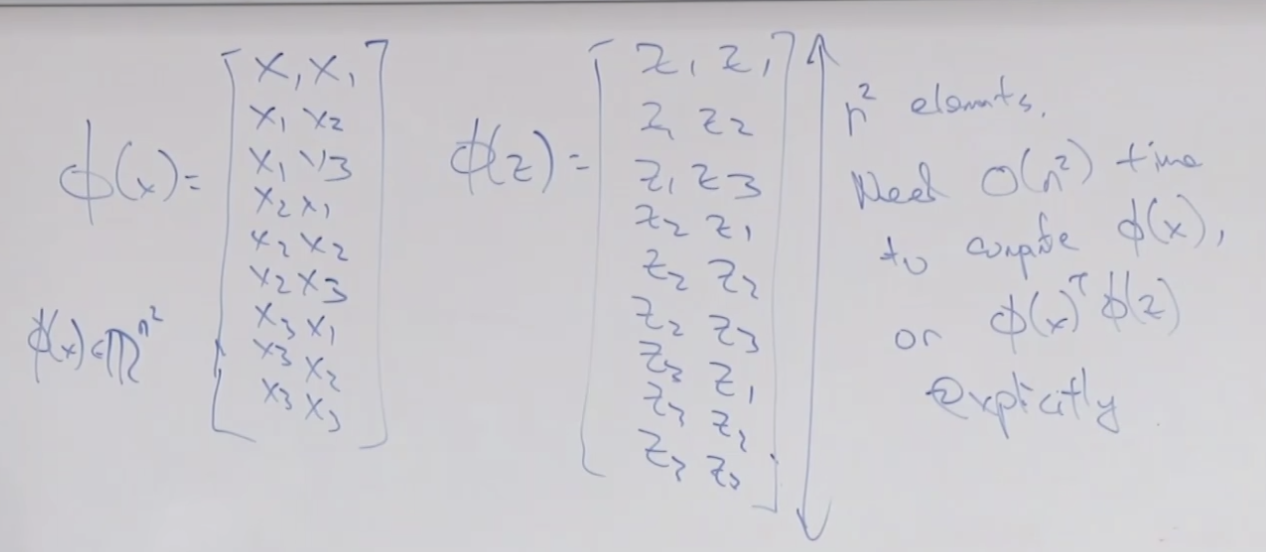 ϕ(x) =
x₁ x₁
x₁ x₂
x₁ x₃
x₂ x₁
x₂ x₂
x₂ x₃
x₃ x₁
x₃ x₂
x₃ x₃
ϕ(x) ∈ ℝⁿ²
ϕ(z) =
z₁ z₁
z₁ z₂
z₁ z₃
z₂ z₁
z₂ z₂
z₂ z₃
z₃ z₁
z₃ z₂
z₃ z₃
n² elements.
Need O(n²) time
to compute ϕ(x),
or ϕ(x)ᵀ ϕ(z)
explicitly.